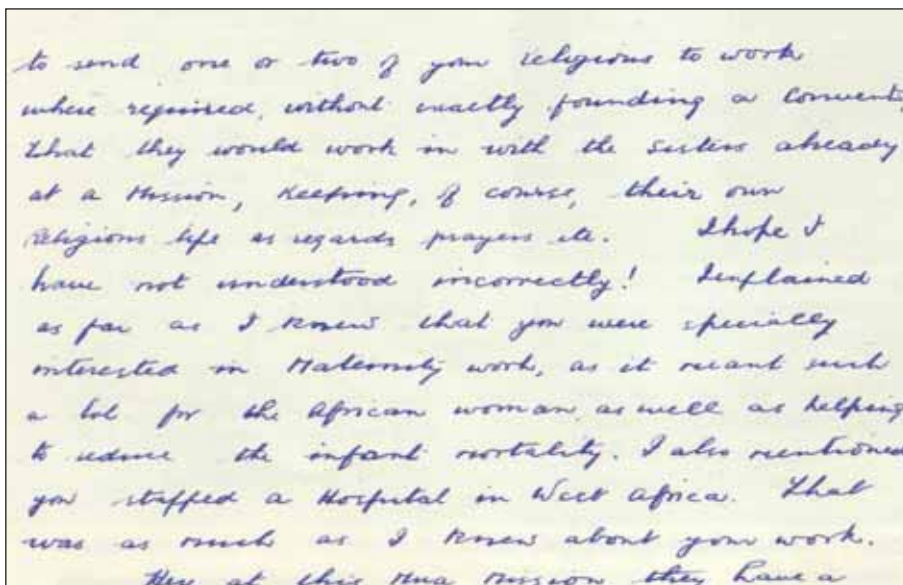 to send one or two of your religious to work
where required, without exactly founding a Convent,
that they would work in with the Sisters already
at a Mission, keeping, of course, their own
religious life as regards prayers etc. I hope I
have not understood incorrectly! I explained
as far as I knew that you were specially
interested in Maternity work, as it meant such
a lot for the African woman, as well as helping
to reduce the infant mortality. I also mentioned
you staffed a Hospital in West Africa. That
was as much as I knew about your work.
Here at this Mua Mission they have a